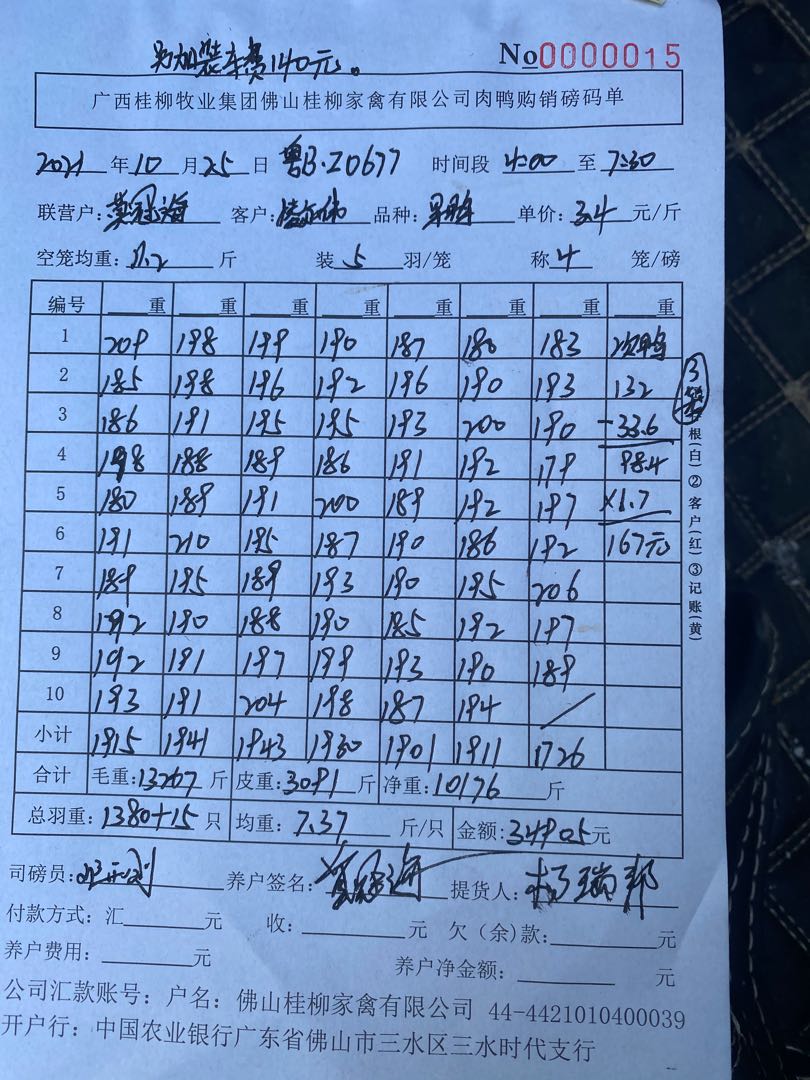 另加装车费140元。
No0000015
广西桂柳牧业集团佛山桂柳家禽有限公司肉鸭购销磅码单
2021年10月25日 粤B·Z0677 时间段 4:00 至 7:30
联营户: 客户: 品种: 单价:3.4 元/斤
空笼均重:11.2 斤 装 5 羽/笼 称 4 笼/磅
编号 重 重 重 重 重 重 重 重
1 209 198 199 190 187 180 183 次鸭
2 185 198 196 192 196 190 193 132
3 186 191 195 195 193 200 190 -33.6
4 198 188 189 186 191 192 179 98.4
5 180 189 191 200 189 192 197 ×1.7
6 191 210 195 187 190 186 192 167元
7 189 195 189 193 190 195 206
8 192 190 188 190 185 192 197
9 192 191 197 199 193 190 189
10 193 191 204 198 187 194 /
小计 1915 1941 1943 1930 1901 1911 1726
合计 毛重:13267 斤 皮重:3091 斤 净重:10176 斤
总羽重:1380+15 只 均重:7.37 斤/只 金额:34905元
司磅员: 养户签名: 提货人:杨瑞邦
付款方式:汇 元 收: 元 欠(余)款: 元
养户费用: 元 养户净金额: 元
公司汇款账号:户名:佛山桂柳家禽有限公司 44-4421010400039
开户行:中国农业银行广东省佛山市三水区三水时代支行
根(白)②客户(红)③记账(黄)